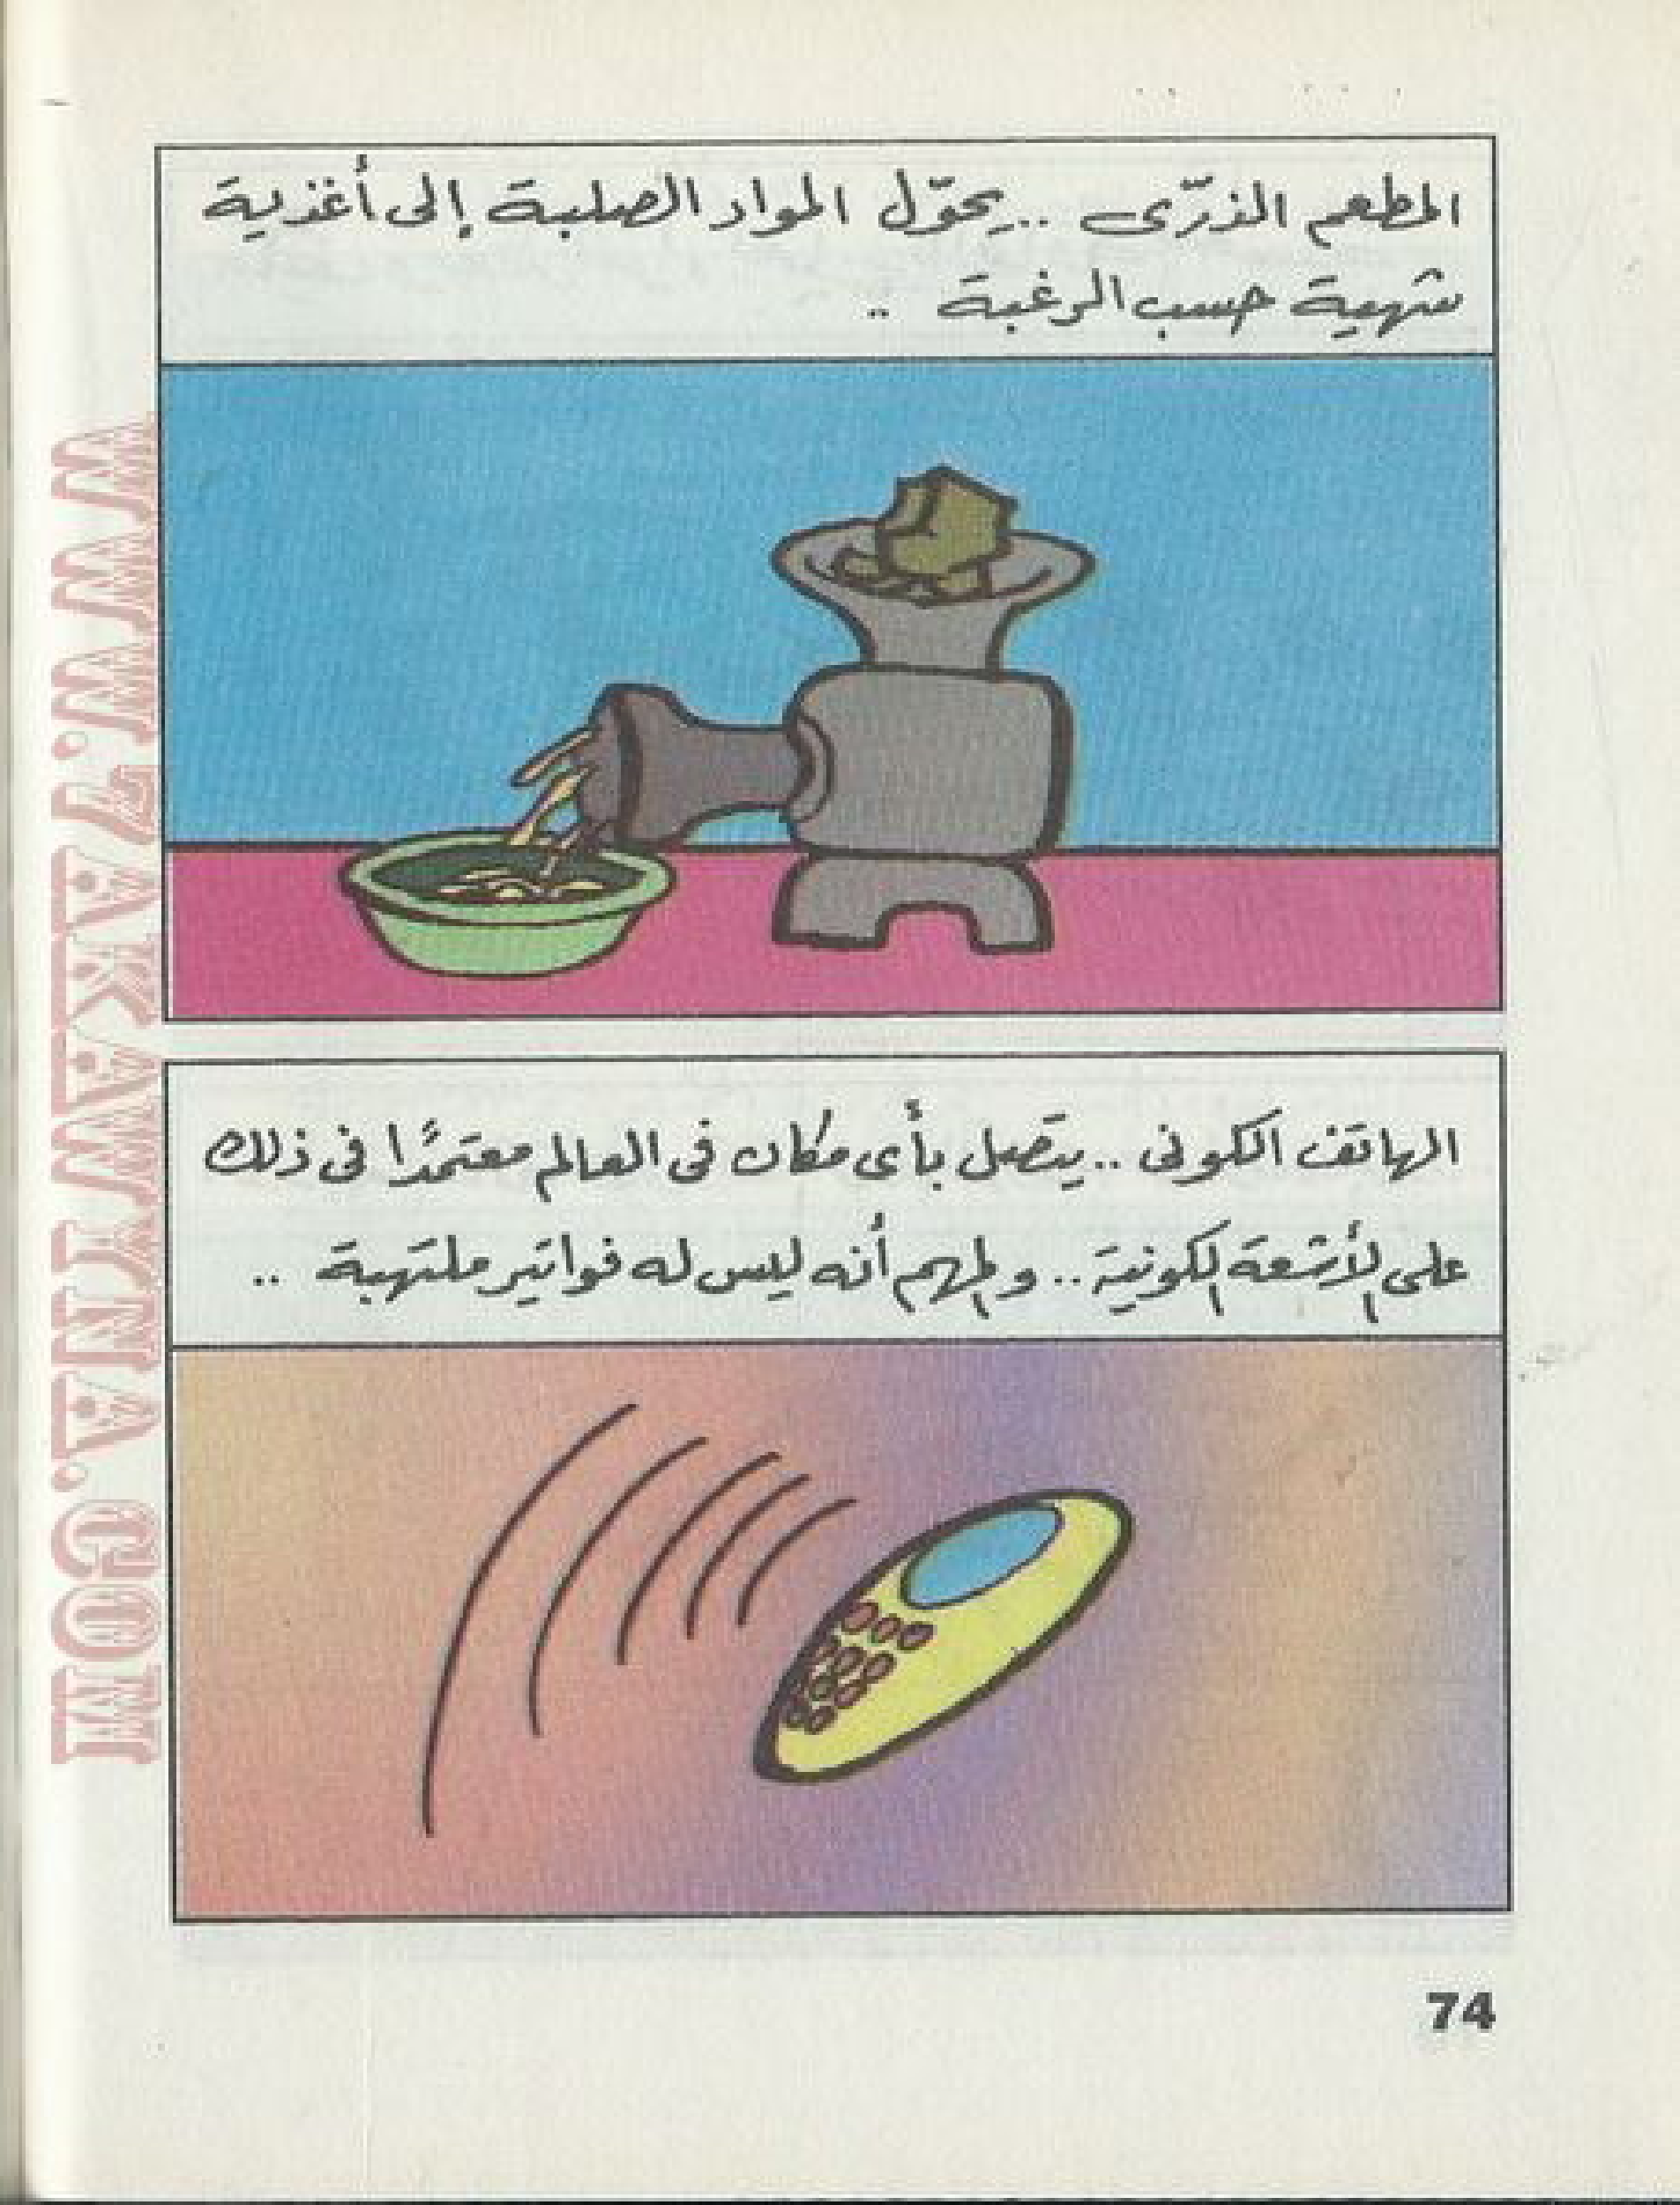 المطعم الذرّى ..يحوّل المواد الصلبة إلى أغذية
شهية حسب الرغبة ..
الهاتف الكونى ..يتصل بأى مكان فى العالم معتمدًا فى ذلك
على الأشعة الكونية.. والمهم أنه ليس له فواتير ملتهبة ..
74
WWW.7AKAWINA.COM